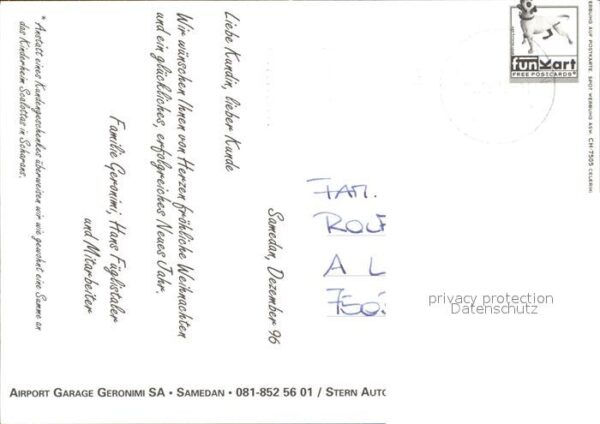 Liebe Kundin, lieber Kunde
Wir wünschen Ihnen von Herzen fröhliche Weihnachten
und ein glückliches, erfolgreiches Neues Jahr.
Familie Geronimi, Hans Füglistaler
und Mitarbeiter
Samedan, Dezember 96
* Anstatt eines Kundengeschenkes überweisen wir wie gewohnt eine Summe an
das Kinderheim Scalottas in Scharans.
FAM.
ROLF
A L
750
funkart
FREE POSTCARDS®
WERBUNG AUF POSTKARTE SPOT WERBUNG ASW. CH-7505 CELERINA
privacy protection
Datenschutz
AIRPORT GARAGE GERONIMI SA • SAMEDAN • 081-852 56 01 / STERN AUTO